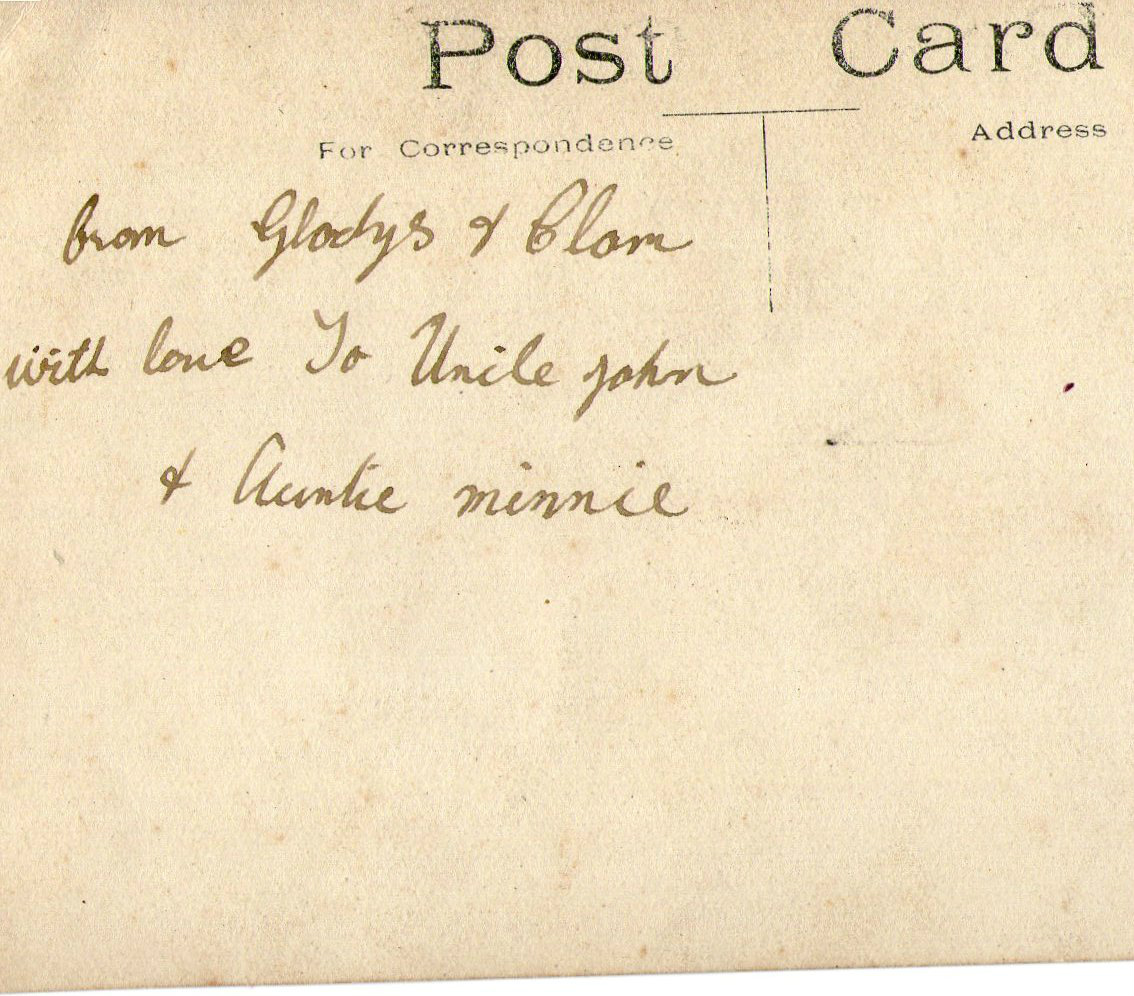 Post Card
For Correspondence Address
from Gladys & Clam
with love To Uncle john
& Auntie minnie